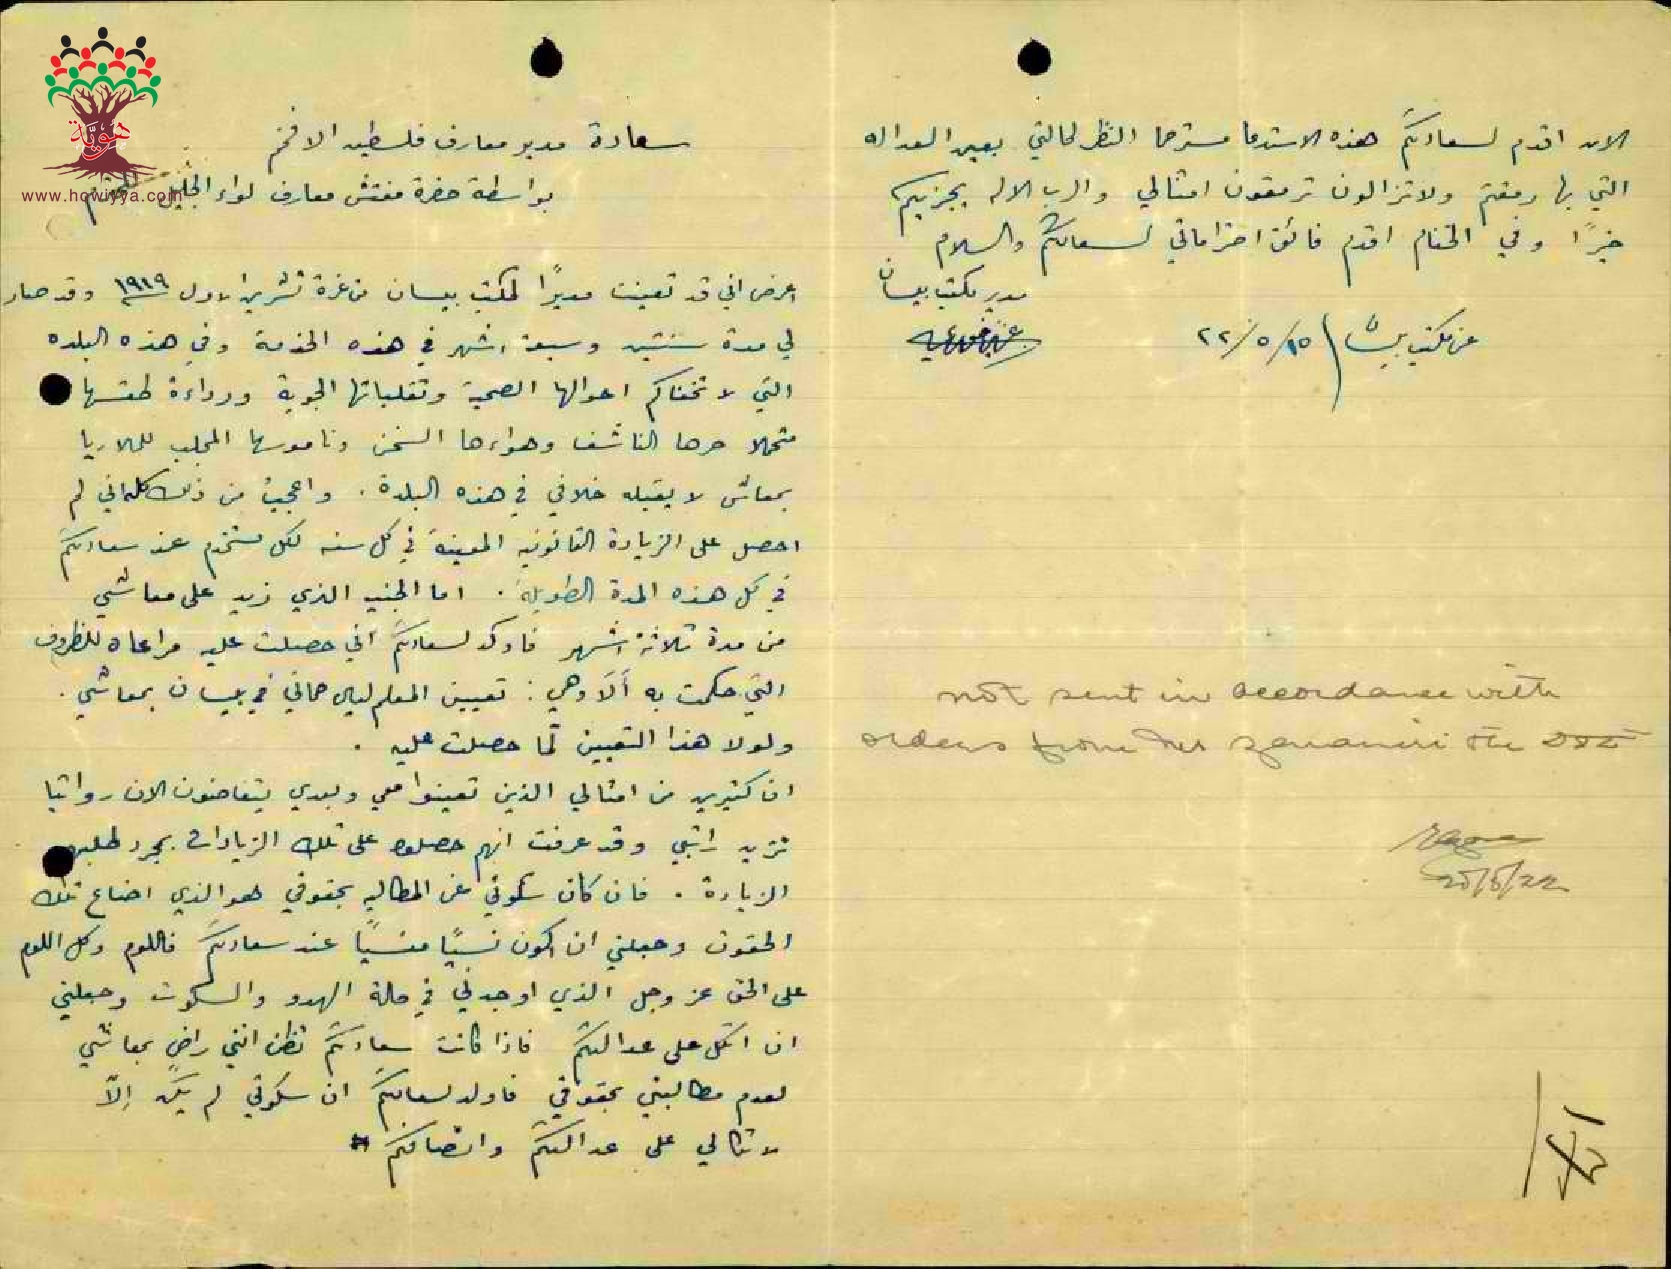 هويّة
www.howiyya.com
سعادة مدير معارف فلسطين الافخم
بواسطة حضرة مفتش معارف لواء الجليل المحترم
اعرض اني قد تعينت مديرًا لمكتب بيسان من غرة تشرين الاول ١٩١٩ وقد صار
لي مدة سنتين وسبعة اشهر في هذه الخدمة وفي هذه البلده
التي لا تخفاكم احوالها الصحية وتقلباتها الجوية ورداءة طقسها
متحملا حرها الناشف وهواءها السخن وناموسها المجلب للملاريا
بمعاش لا يقبله خلافي في هذه البلدة . واعجب من ذلك كله اني لم
احصل على الزيادة القانونيه المعينة في كل سنه لكل مستخدم عند سعادتكم
في كل هذه المدة الطويلة . اما الجنيه الذي زيد على معاشي
من مدة ثلاثة اشهر فاوكد لسعادتكم اني حصلت عليه مراعاة للظروف
التي حكمت به ألا وهي : تعيين المعلم ليان حماتي في بيسان بمعاشي .
ولولا هذا التعيين لما حصلت عليه .
ان كثيرين من امثالي الذين تعينوا معي وبعدي يتقاضون الان رواتبا
تزيد راتبي وقد عرفت انهم حصلوا على تلك الزيادات بمجرد طلبهم
الزيادة . فان كان سكوتي عن المطالبه بحقوقي هو الذي اضاع تلك
الحقوق وجعلني ان اكون نسيًا منسيًا عند سعادتكم فاللوم وكل اللوم
على الحق عز وجل الذي اوجدني في حالة الهدو والسكوت وجعلني
ان اتكل على عدالتكم فاذا كانت سعادتكم تظن انني راضٍ بمعاشي
لعدم مطالبتي بحقوقي فاوكد لسعادتكم ان سكوتي لم يكن إلّا
لاتكالي على عدالتكم وانصافكم
الان اقدم لسعادتكم هذه الاستدعا مسترحما النظر لحالتي بعين العداله
التي بها رمقتم ولا تزالون ترمقون امثالي والرب الاله يجزيكم
خيرًا وفي الختام اقدم فائق احتراماتي لسعادتكم والسلام
مدير مكتب بيسان
عن مكتب بيسان ١٥/٥/٢٢
not sent in accordance with
orders from Mr
25/5/22